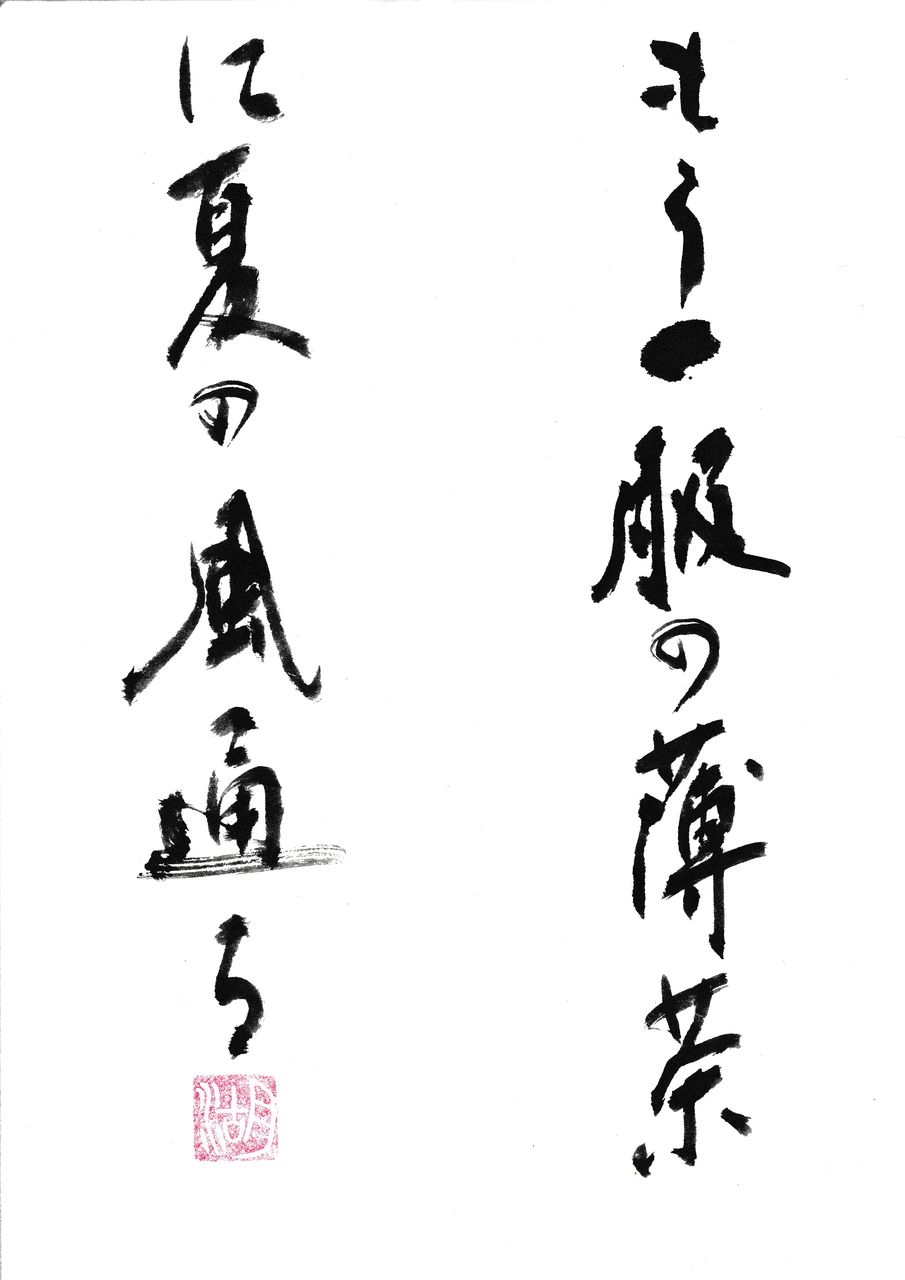 もう一服の薄茶
に夏の風通る
湖